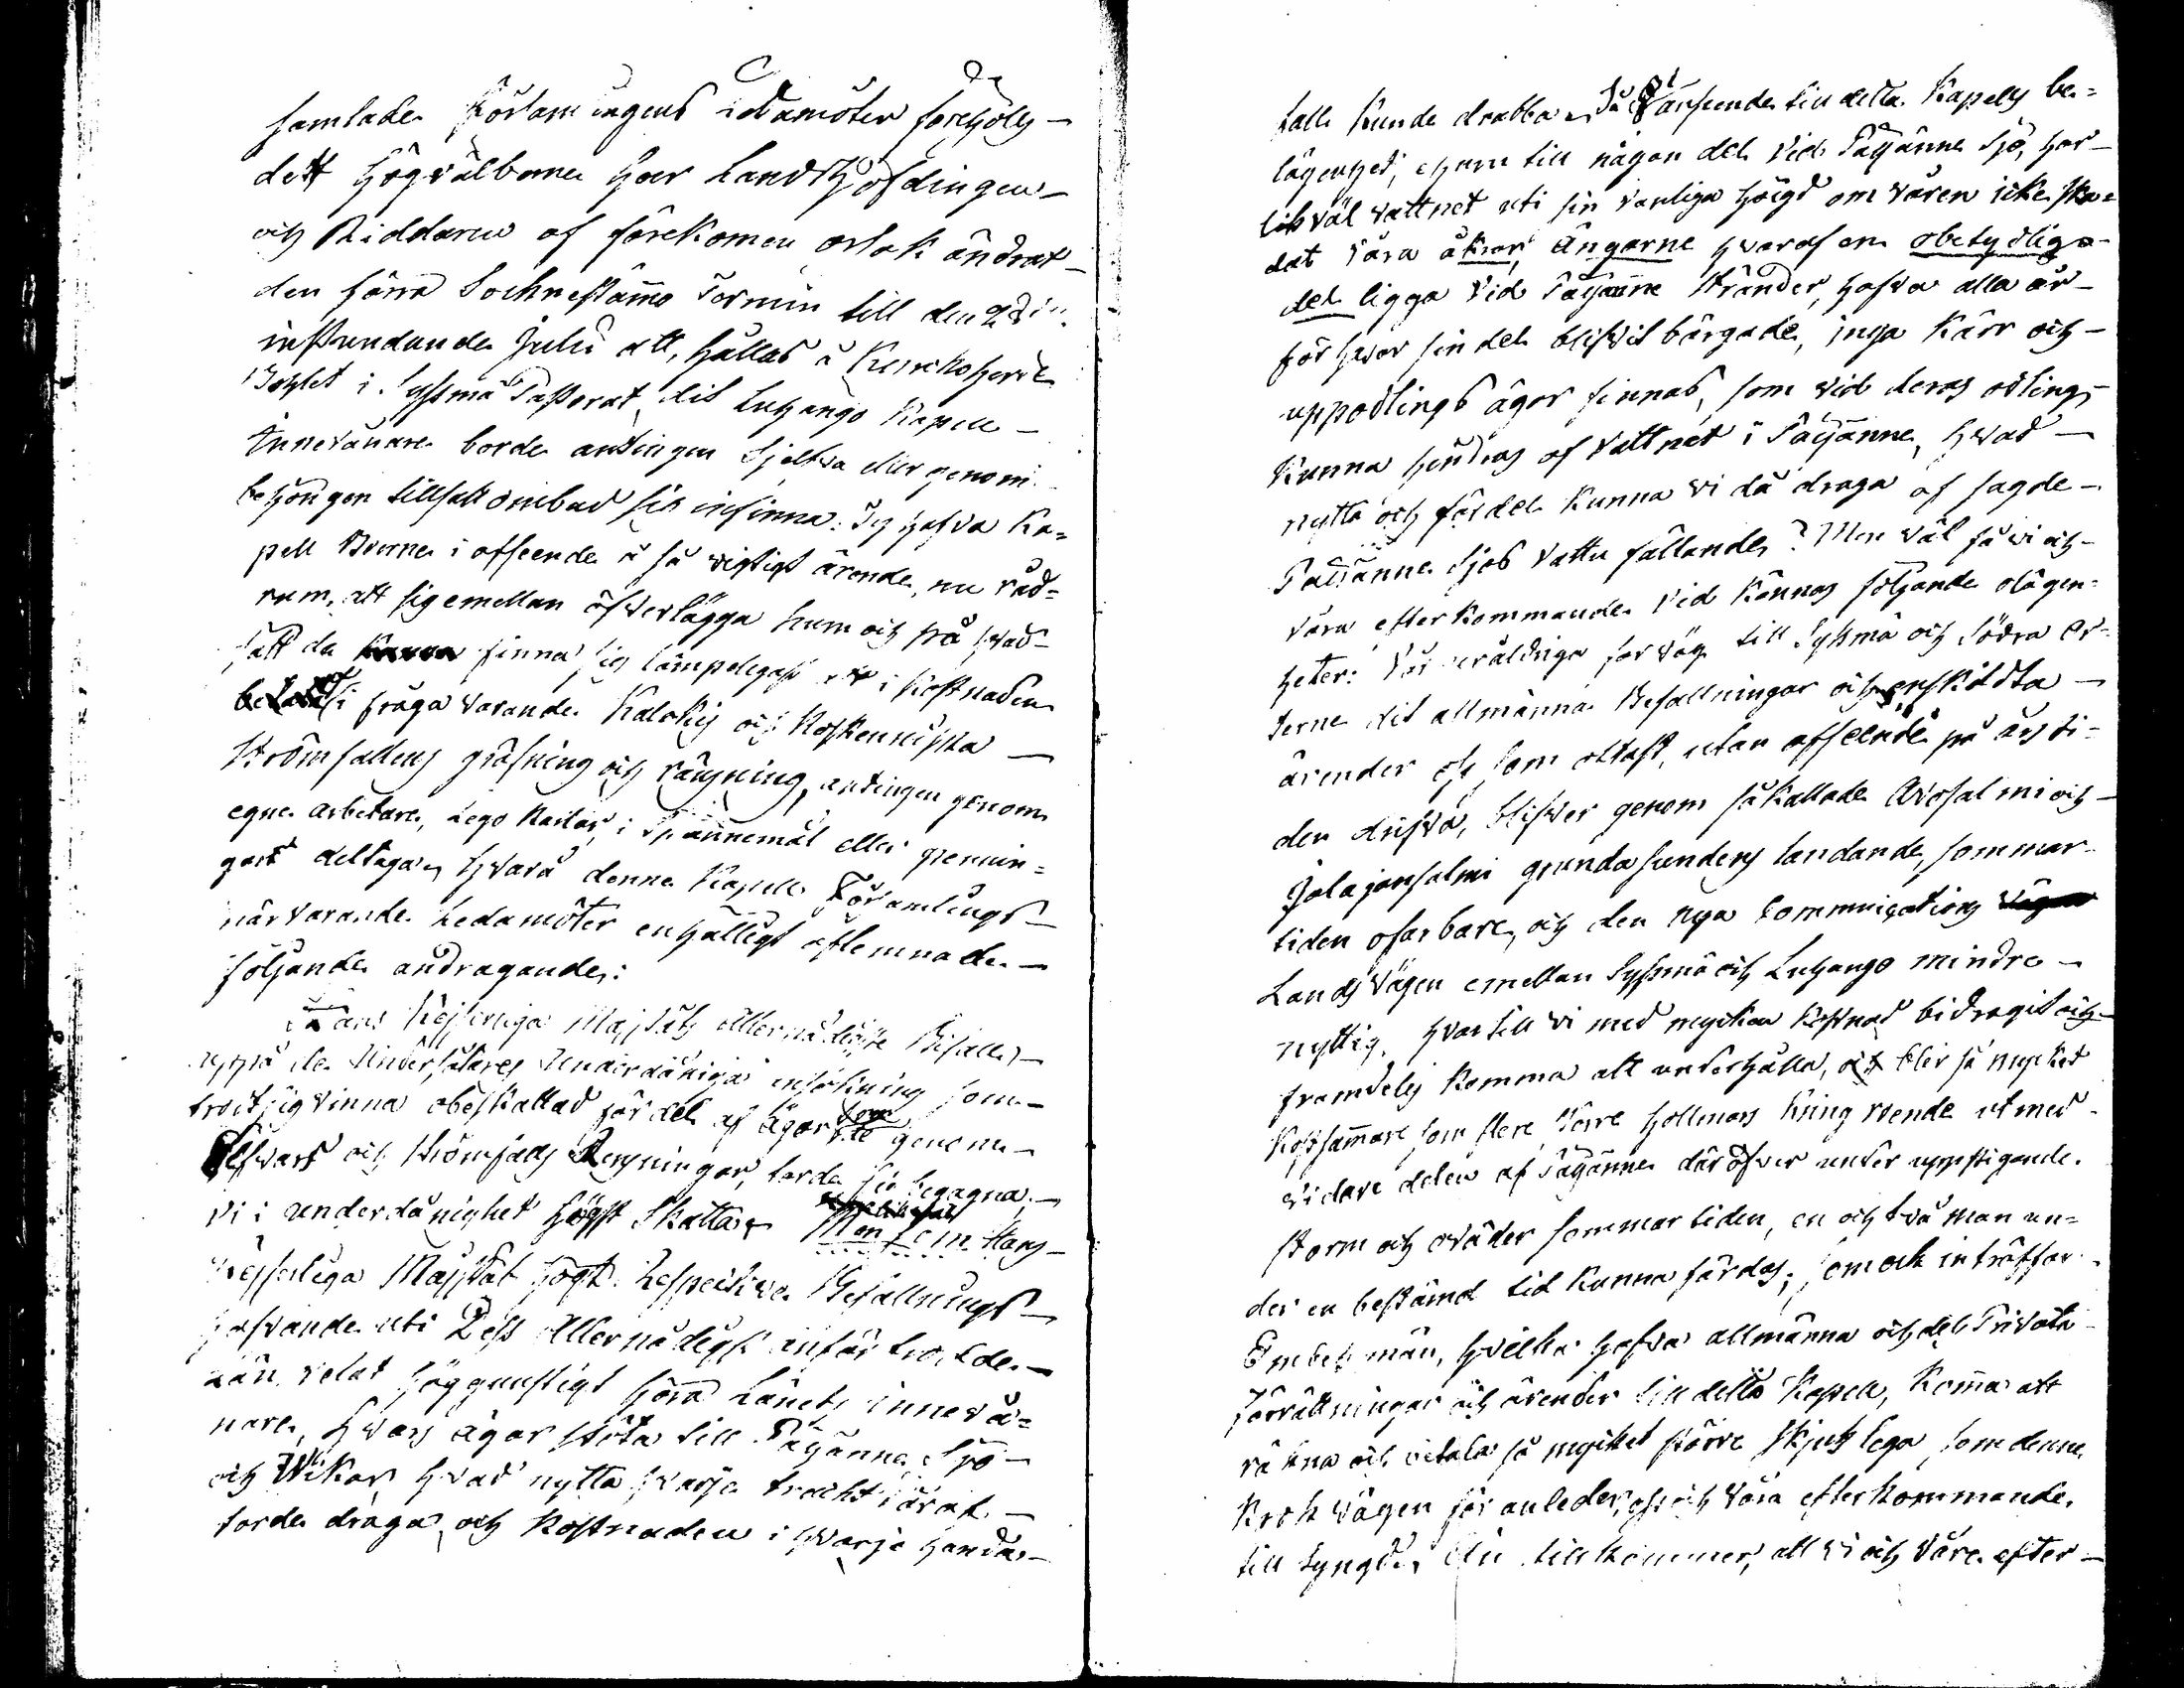 samlade Församlingens Ledamöter förehölls
dett Högvälborne Herr Landshöfdingen
och Riddaren af förekomen orsak ändrat
den förra Sochnestämo Termin till den
instundande Julii att, hållas å Kyrkoherde
Bohlet i Sysmä Pastorat, dit Luhango Kapell
Innevånare borde antingen Sjelfva eller genom
behörigen tillsatt ombud sig infinna. Jeg hafva Ka=
pell Boerne i afseende å så vigtigt ärende, nu råd=
rum, att sig emellan öfverlägga hum och på hvad
sätt de finna sig lämpeligast i Kostnaden
i fråga varande Kalckis och Koskennuska
Strömfallens gräfning och räensning, antingen genom
egne arbetare, Lego Karlar, i Spannemål eller pennin=
gart deltaga, hvarå denne Kapell Församlings
närvarande Ledamöter enhälligt aflemnade
följande andragande:
Hans Kejserliga Majstäts Allernådigste Bifall,
uppå de Undersåtares Underdåniga ansökning som
troit sig vinna obeskattad fördel af Ägor som genom
Elfvars och Strömfalls Rensningar, torde fin begagna,
vi i underdånighet högst Skatta. Men som Hans
Kejserliga Majstät högt Respective Befallnings
hafvande uti Dess Allernådigst anförtrodde
Län, velat höggunstigt höra Länets innevå=
nare, hvars ägor stöta till Päijänne Sjö
och Wikar, hvad nytta hvarje tracht däraf
torde draga, och Kostnaden i hvarje handa
falle kunde drabba. Så afseende till detta Kapells be=
lägenhet, ehuru till någon del vid Päijänne Sjö, har
likväl vattnet uti sin vanliga högd om våren icke ska=
dat våra åkrar, Ängarne hvaraf en obetydliga
del ligga vid Päijänne Stränder, hafva alla år
för hvar sin del blifvit bärgade, inga Kärr och
uppodlings ägor finnas, som vid deras odling
kunna hindras af vattnet i Päijänne, hvad
nytta och fördel kunna vi då draga af sagde
Päijänne Sjös vattu fällande? Men väl få vi och
våra efterkommande vid kännas följande olägen=
heter: Vår uråldriga farväg till Sysmä och Södra Or=
terne dit allmänna Befallningar och enskildta
ärender oss som oftast, utan afseende på års ti=
den drifva, blifver genom så kallade Avosalmi och
Jolajansalmi grunda Sunders landande, sommar
tiden ofarbare, och den nya Communications
Lands Vägen emellan Sysmä och Luhango mindre
nyttig, hvartill vi med mycken kostnad bidragit och
framdeles komma att underhålla, och blir så mycket
kostsammare som flere större hollmars kring roende ut med
vidare delen af Päijänne däröfver under uppstigande
storm och oväder sommartiden, en och två man un=
der en bestämd tid kunna färdas, som ock inträffar
Embets män, hvilka hafva allmänna och dels Privata
förrättningar och ärender till detta Kapell, komma att
räkna och betala så mycket större Skjuts lega, som denne
Krok vägen för anleder, oss och våra efterkommande,
till tyngd. Än tillkommer, att vi och våra efter